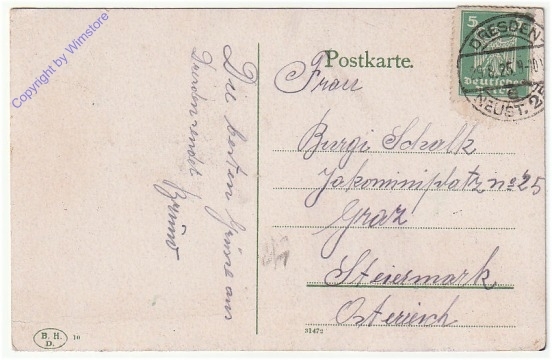 Copyright by Wimstore
Die besten Grüsse aus
Dresden sendet
Bruno
Postkarte.
Frau
Burgi Schalk
Jakominiplatz no 25
Graz
Steiermark
Osterieich
5
Deutsches
Reich
DRESDEN
.25.
NEUST. 24
B. H.
D.
10
31472